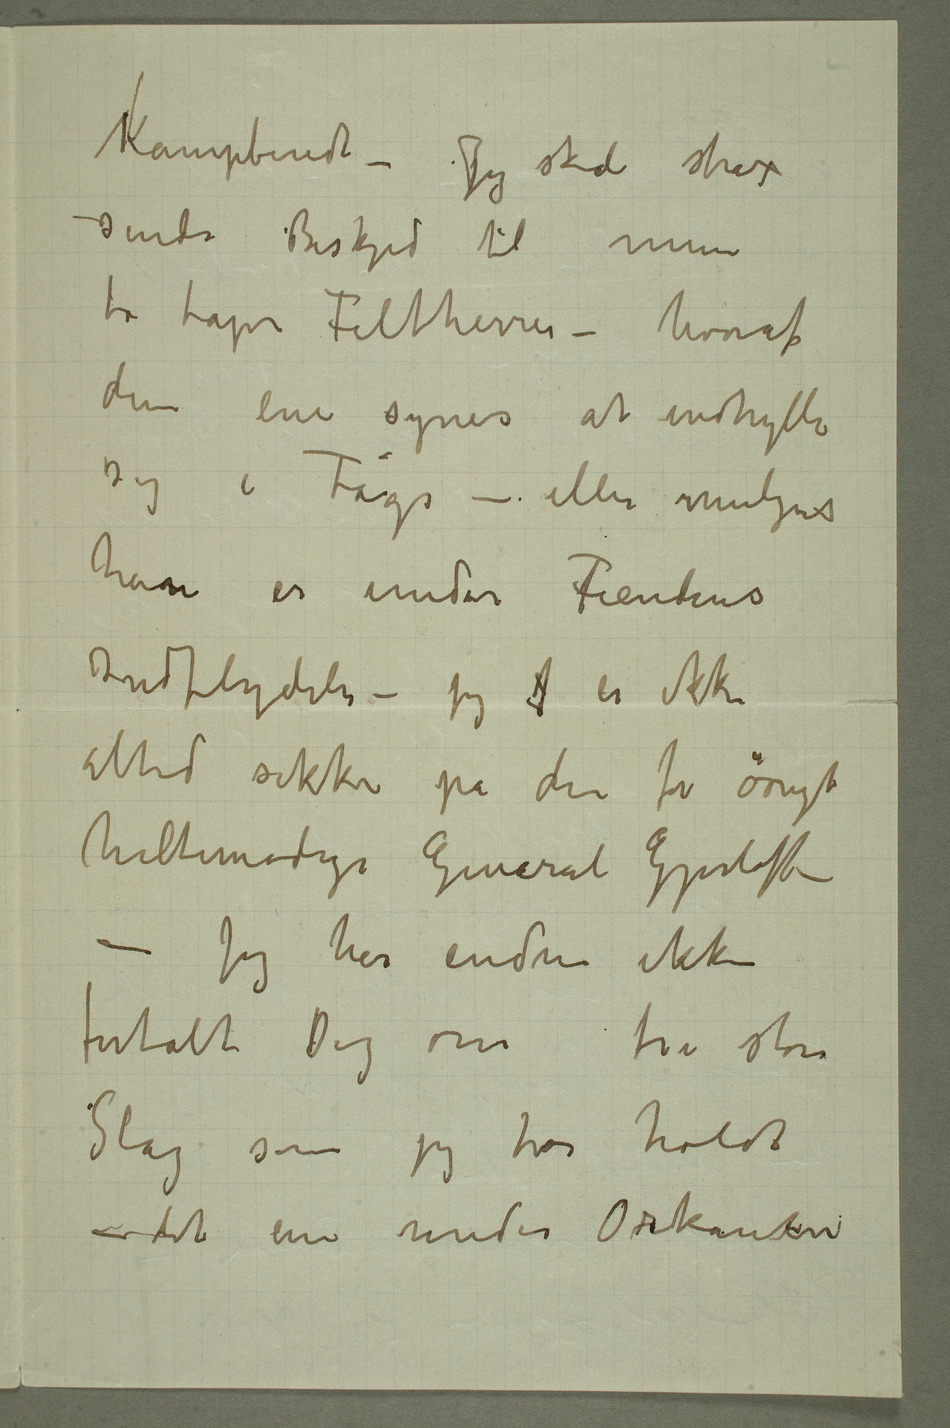 Kampberedt – Jeg skal strax
sende Beskjed til mine
to tapre Feltherrer – hvoraf
den ene synes at indhylle
sig i Tåge – eller muligens
han er under Fiendens
Indflydelse – jeg er ikke
altid sikker på den for øvrigt
heltemodige General Gjerløff
– Jeg har endnu ikke
fortalt Dig om tre store
Slag som jeg har holdt
– det ene under Orkanen